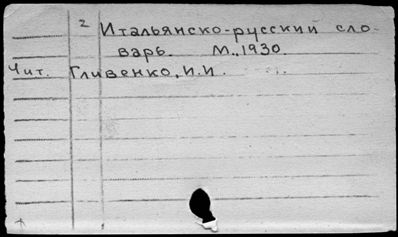 2 Итальянско-русский сло-
варь. М., 1930.
Чит. Гливенко, И.И.